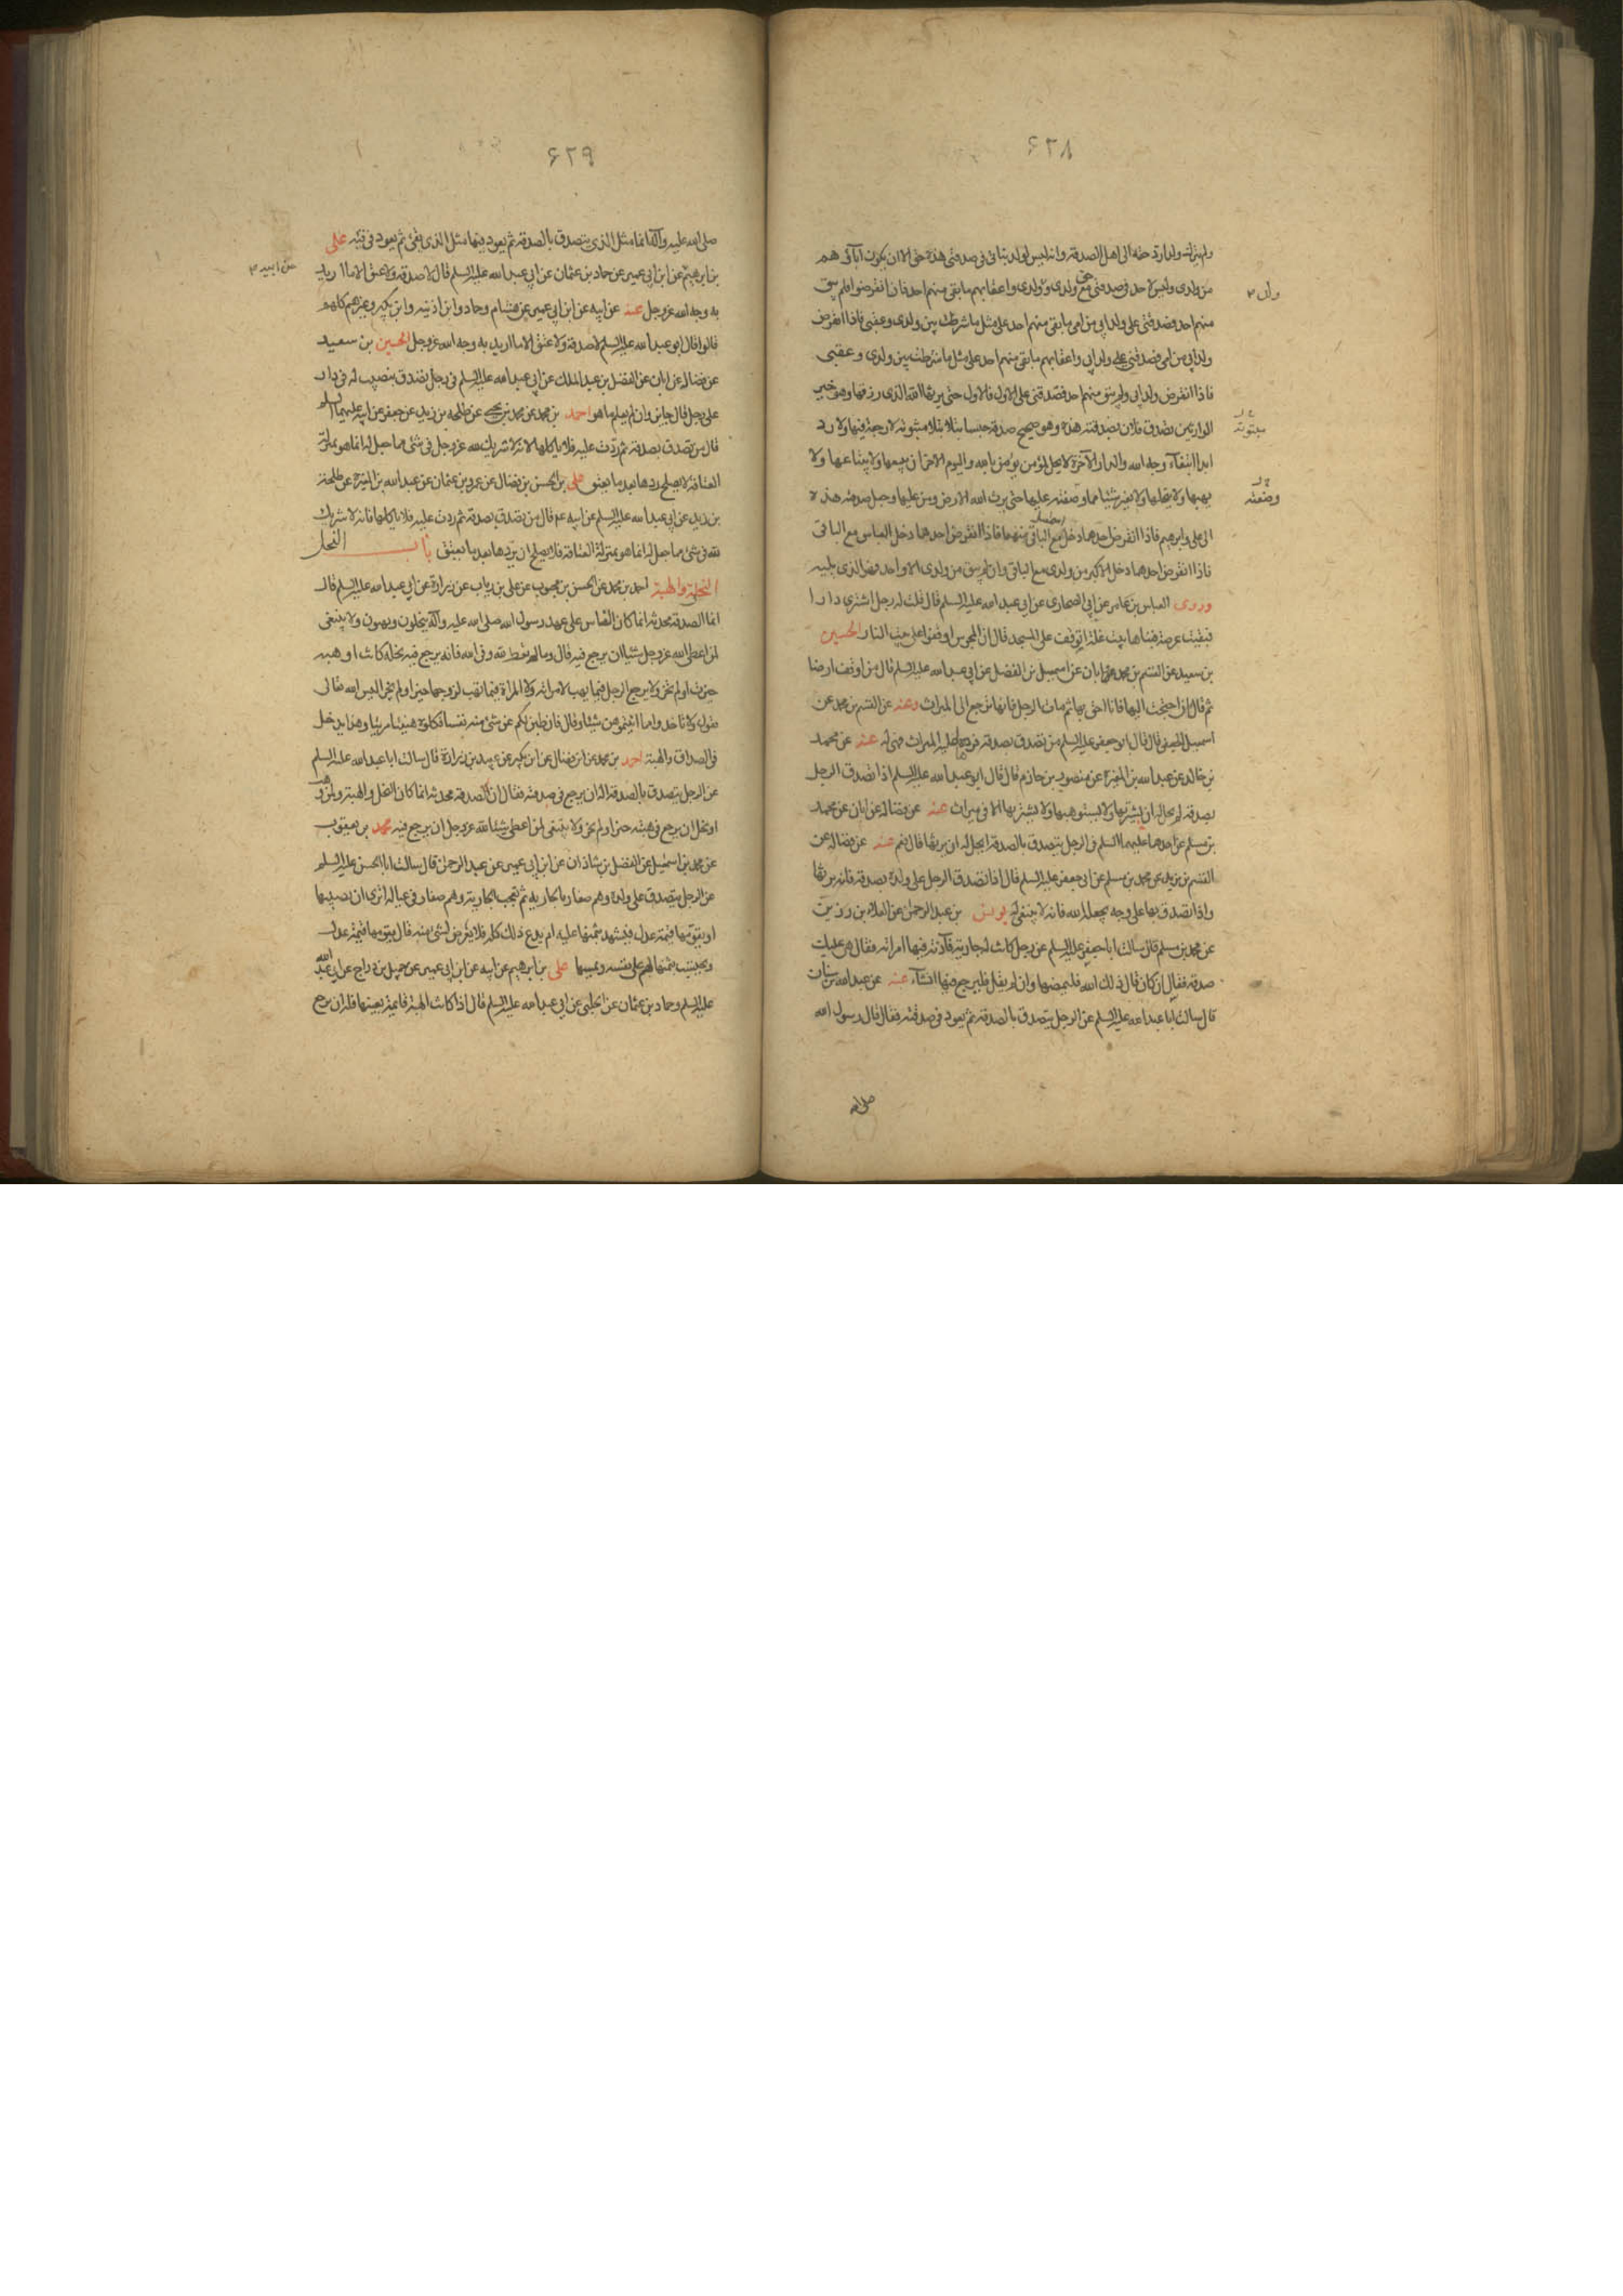 ۶۲۸
ولم يترك ولدا رد حقه الى اهل الصدقة وانه ليس لولد بناتى فى صدقتى هذه حق الا ان يكون آباؤهم
من ولدى وليس لاحد فى صدقتى حق مع ولدى وولد ولدى واعقابهم ما بقى منهم احد فان انقرضوا فلم يبق
منهم احد فصدقتى على ولد ابى من امى ما بقى منهم احد على مثل ما شرطت بين ولدى وعقبى فاذا انقرض
ولد ابى من امى فصدقتى على ولد ابى واعقابهم ما بقى منهم احد على مثل ما شرطت بين ولدى وعقبى
فاذا انقرض ولد ابى ولم يبق منهم احد فصدقتى على الاول فالاول حتى يرثها الله الذى رزقها وهو خير
الوارثين تصدق فلان بصدقته هذه وهو صحيح صدقة حبسا بتلا بتلا مبتوتة لا رجعة فيها ولا رد
ابدا ابتغآء وجه الله والدار الآخرة لا يحل لمؤمن يؤمن بالله واليوم الاخر ان يبيعها ولا يبتاعها ولا
يهبها ولا ينحلها ولا يغير شيئا مما وصفته عليها حتى يرث الله الارض ومن عليها وجعل صدقته هذه
الى على وابرهيم فاذا انقرض احدهما دخل القسم مع الباقى منهما فاذا انقرض احدهما دخل العباس مع الباقى
فاذا انقرض احدهما دخل الاكبر من ولدى مع الباقى وان لم يبق من ولدى الا واحد فهو الذى يليه
وروى العباس بن عامر عن ابى الصحارى عن ابى عبد الله عليه السلم قال قلت له رجل اشترى دارا
فبقيت عرصة فبناها بيت غلة اتوقف على المسجد قال ان المجوس اوقفوا على بيت النار الحسين
بن سعيد عن القسم بن محمد عن ابان عن اسمعيل بن الفضل عن ابى عبد الله عليه السلم قال من اوقف ارضا
ثم قال ان احتجت اليها فانا احق بها ثم مات الرجل فانها ترجع الى الميراث وعنه عن القسم بن محمد عن
اسمعيل الجعفى قال قال ابو جعفر عليه السلم من تصدق بصدقة فردها عليه الميراث فهى له عنه عن محمد
بن خالد عن عبد الله بن المغيرة عن منصور بن حازم قال قال ابو عبد الله عليه السلم اذا تصدق الرجل
بصدقة لم يحل له ان يشتريها ولا يستوهبها ولا يستردها الا فى ميراث عنه عن فضالة عن ابان عن محمد
بن مسلم عن احدهما عليهما السلم فى الرجل يتصدق بالصدقة ايحل له ان يرثها قال نعم عنه عن فضالة عن
القسم بن بريد عن محمد بن مسلم عن ابى جعفر عليه السلم قال اذا تصدق الرجل على ولده بصدقة فانه يرثها
واذا تصدق بها على وجه يجعله لله فانه لا ينبغى له يونس بن عبد الرحمن عن العلاء بن رزين
عن محمد بن مسلم قال سالت ابا جعفر عليه السلم عن رجل كانت له جارية فآذته فيها امراته فقال هى عليك
صدقة فقال ان كان قال ذلك لله فليمضها وان لم يقل فليرجع فيها انشآء عنه عن عبد الله بن سنان
قال سالت ابا عبد الله عليه السلم عن الرجل يتصدق بالصدقة ثم يعود فى صدقته فقال قال رسول الله
صلى الله
مبتوتة
وضعته
۶۲۹
صلى الله عليه وآله انما مثل الذى يتصدق بالصدقة ثم يعود فيها مثل الذى يقئ ثم يعود فى قيئه على
بن ابرهيم عن ابن ابى عمير عن حماد بن عثمان عن ابى عبد الله عليه السلم قال لا صدقة ولا عتق الا ما اريد
به وجه الله عز وجل عنه عن ابيه عن ابن ابى عمير عن هشام وحماد وابن اذينه وابن بكير وغيرهم كلهم
قالوا قال ابو عبد الله عليه السلم لا صدقة ولا عتق الا ما اريد به وجه الله عز وجل الحسين بن سعيد
عن فضاله عن ابان عن الفضل بن عبد الملك عن ابى عبد الله عليه السلم فى رجل تصدق بنصيب له فى دار
على رجل قال جايز وان لم يعلم ما هو احمد بن محمد عن محمد بن يحيى عن طلحه بن زيد عن جعفر عن ابيه عليهما السلم
قال من تصدق بصدقة ثم ردت عليه فلا ياكلها لانه لا شريك لله عز وجل فى شئ مما جعل له انما هو بمنزلة
العتاقة لا يصلح ردها بعد ما يعتق على بن الحسن بن فضال عن عمرو بن عثمان عن عبد الله بن المغيرة عن طلحة
بن زيد عن ابى عبد الله عليه السلم عن ابيه ع قال من تصدق بصدقة ثم ردت عليه فلا ياكلها فانه لا شريك
لله فى شئ مما جعل له انما هو بمنزلة العتاقة فلا يصلح ان يردها بعد ما يعتق باب النحل
النحلة والهبة احمد بن محمد عن الحسن بن محبوب عن على بن رياب عن زرارة عن ابى عبد الله عليه السلم قال
انما الصدقة محدثة انما كان الناس على عهد رسول الله صلى الله عليه وآله ينحلون ويهبون ولا ينبغى
لمن اعطى لله عز وجل شيئا ان يرجع فيه قال وما لم يعط لله وفى الله فانه يرجع فيه نحلة كانت او هبه
حيزت او لم تحز ولا يرجع الرجل فيما يهب لامراته ولا المراة فيما تهب لزوجها حيز او لم يحز اليس الله تعالى
يقول ولا تاخذوا مما اتيتموهن شيئا وقال فان طبن لكم عن شئ منه نفسا فكلوه هنيئا مريئا وهذا يدخل
فى الصداق والهبة احمد بن محمد عن ابن فضال عن ابن بكير عن عبيد بن زرارة قال سالت ابا عبد الله عليه السلم
عن الرجل يتصدق بالصدقة اله ان يرجع فى صدقته فقال ان الصدقة محدثة انما كان النحل والهبة ولمن وهب
او نحل ان يرجع فى هبته حيز او لم يحز ولا ينبغى لمن اعطى شيئا لله عز وجل ان يرجع فيه محمد بن يعقوب
عن محمد بن اسمعيل عن الفضل بن شاذان عن ابن ابى عمير عن عبد الرحمن قال سالت ابا الحسن عليه السلم
عن الرجل يتصدق على ولده وهم صغار بالجارية ثم تعجبه الجارية وهم صغار فى عياله اترى ان يصيبها
او يقومها قيمة عدل فيشهد بثمنها عليه ام يدع ذلك كله فلا يعرض لشئ منه قال يقومها قيمة عدل
ويحتسب بثمنها لهم على نفسه ويمسها على بن ابرهيم عن ابيه عن ابن ابى عمير عن جميل بن دراج عن ابى عبد الله
عليه السلم وحماد بن عثمان عن الحلبى عن ابى عبد الله عليه السلم قال اذا كانت الهبة قائمة بعينها فله ان يرجع
عن ابيه